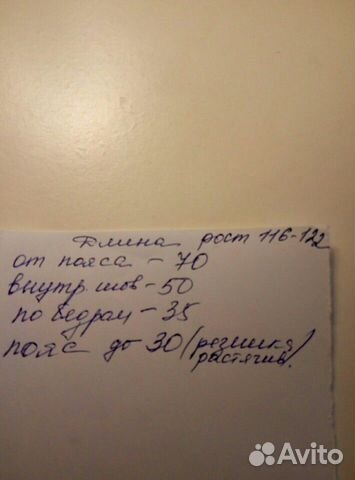 Длина рост 116-122
от пояса - 70
внутр. шов - 50
по бедрам - 35
пояс до 30 (резинка
растягив.)
Avito